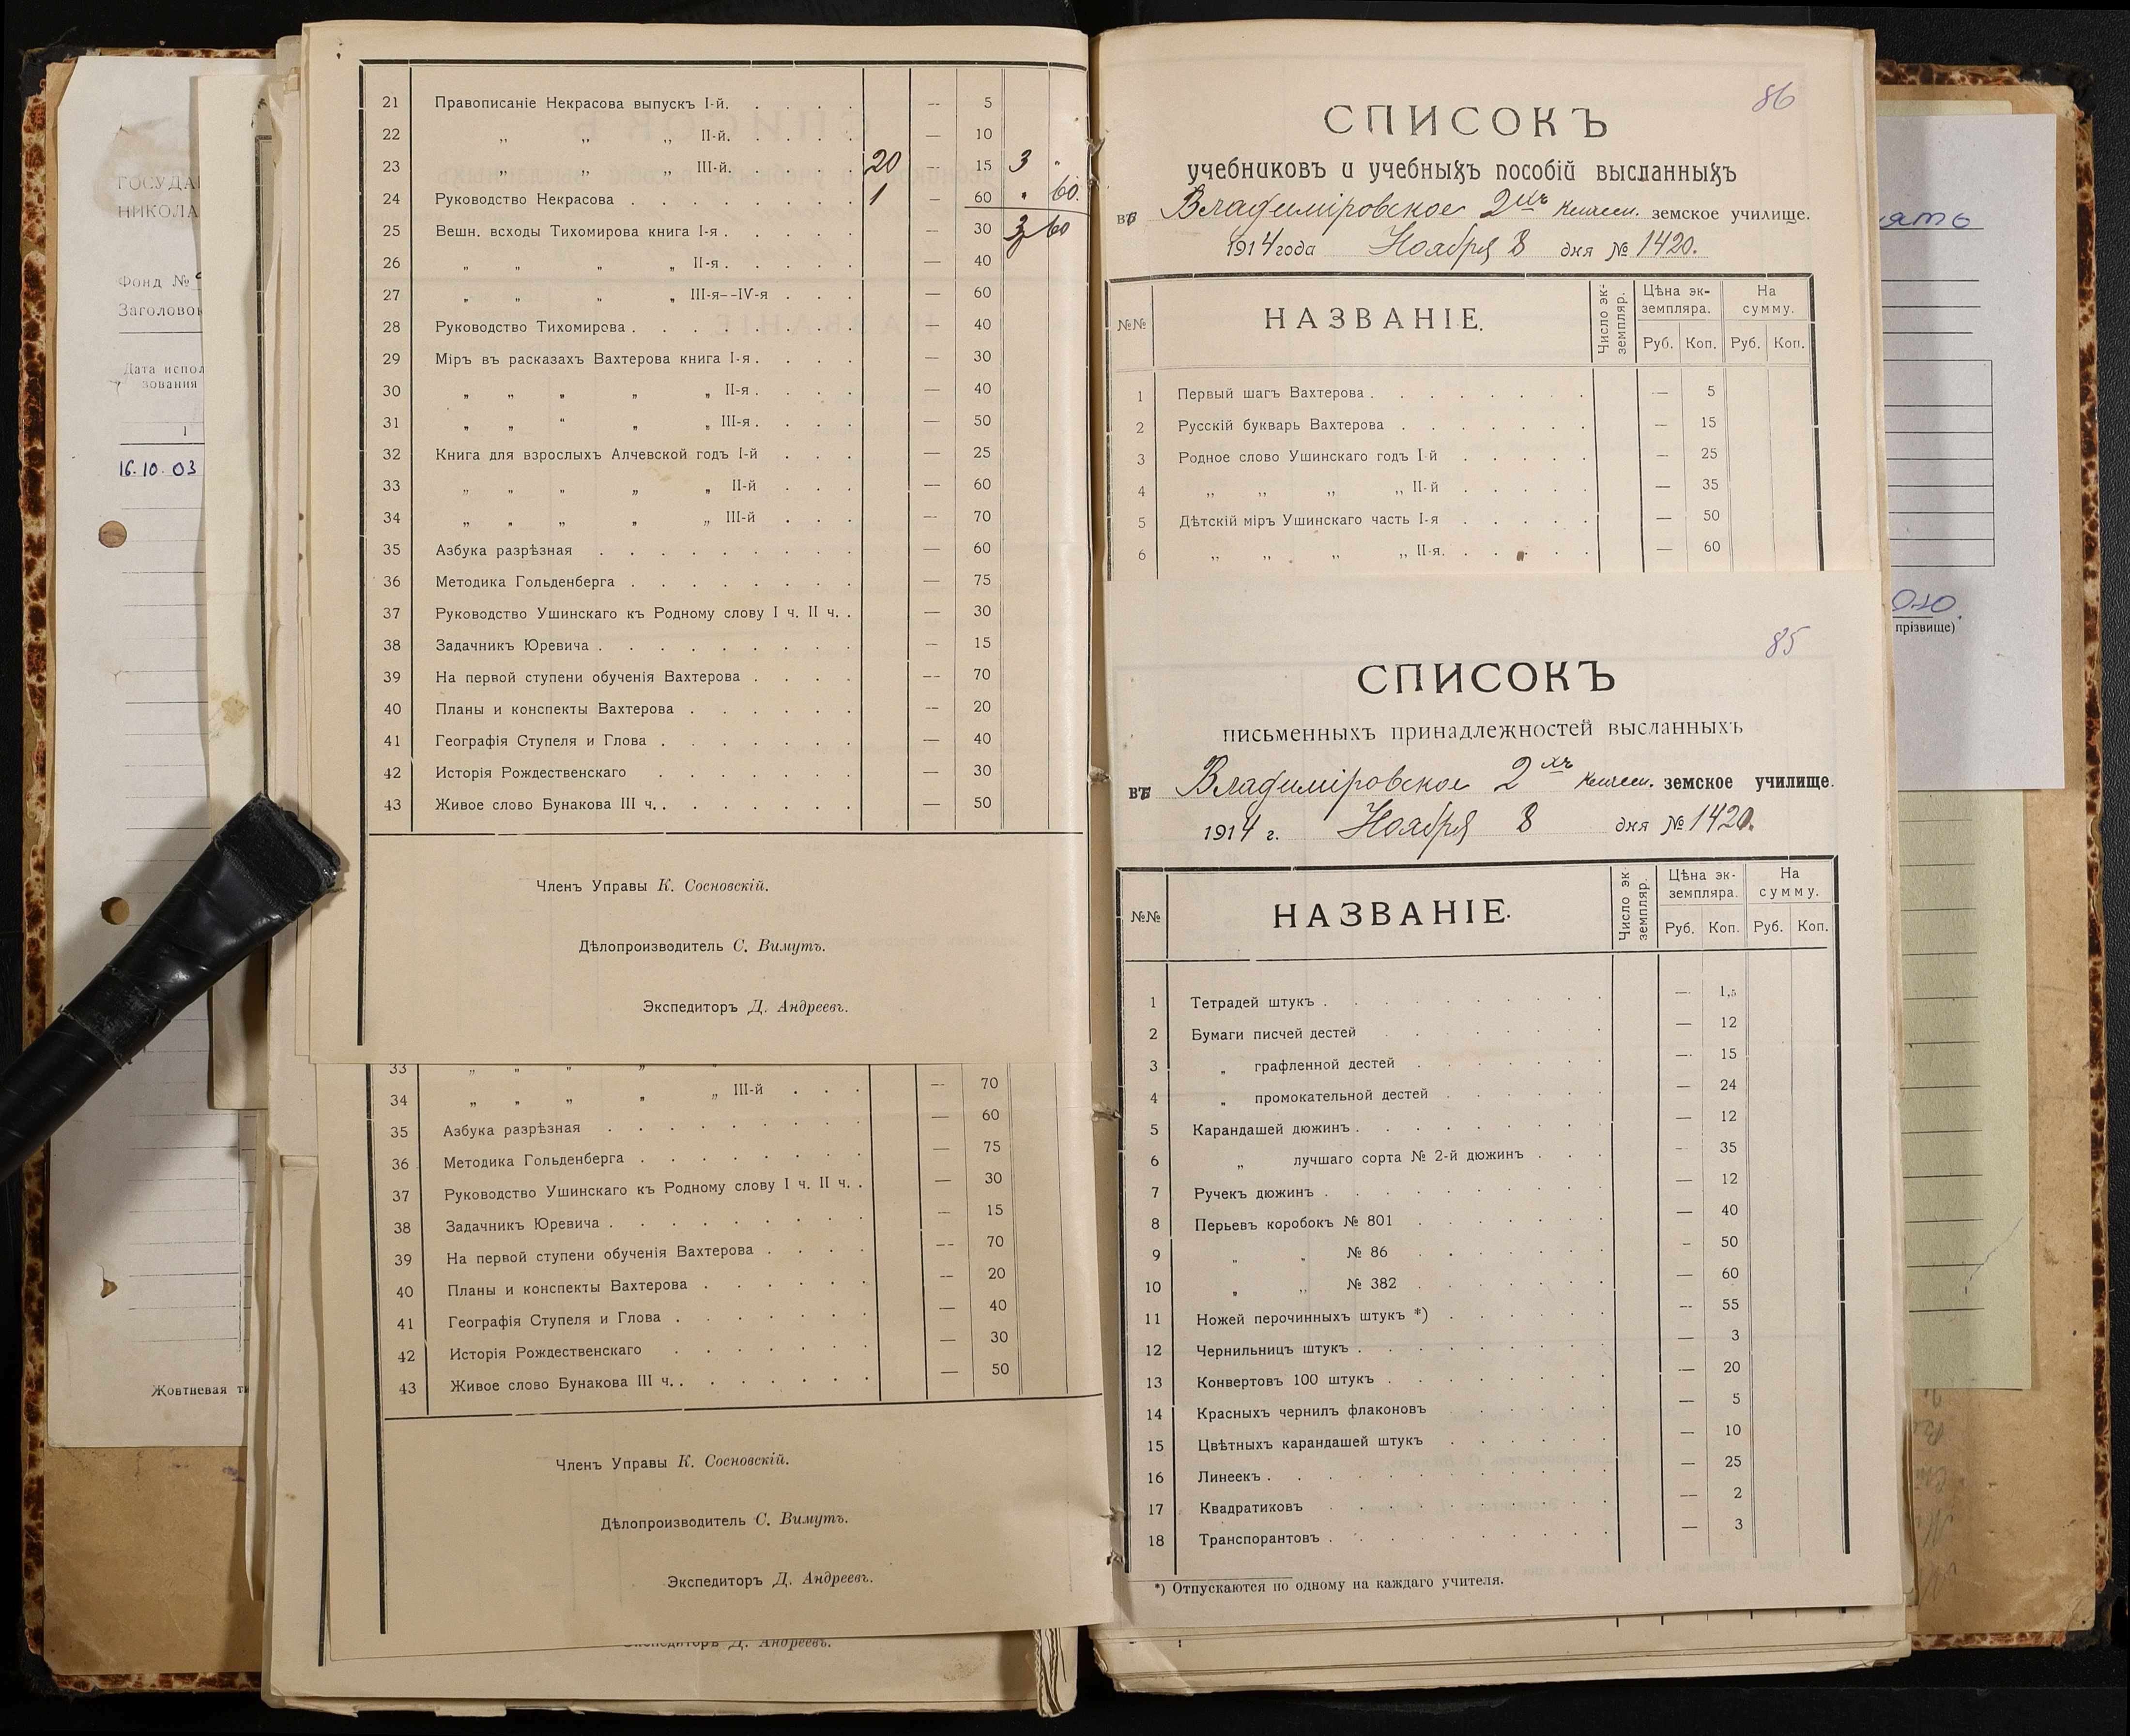 ГОСУДА
НИКОЛА
Фонд №
Заголовок
Дата испол
зования
1
16.10.03
Жовтневая ти
21 Правописаніе Некрасова выпускъ I-й. — 5
22 „ „ „ II-й. — 10
23 „ „ „ III-й. 20 — 15 3 „
24 Руководство Некрасова 1 — 60 „ 60.
25 Вешн. всходы Тихомирова книга I-я — 30 3 60
26 „ „ „ „ II-я — 40
27 „ „ „ „ III-я--IV-я — 60
28 Руководство Тихомирова — 40
29 Мiръ въ расказахъ Вахтерова книга I-я — 30
30 „ „ „ „ „ II-я — 40
31 „ „ „ „ „ III-я — 50
32 Книга для взрослыхъ Алчевской годъ I-й — 25
33 „ „ „ „ „ II-й — 60
34 „ „ „ „ „ III-й — 70
35 Азбука разрѣзная — 60
36 Методика Гольденберга — 75
37 Руководство Ушинскаго къ Родному слову I ч. II ч. — 30
38 Задачникъ Юревича — 15
39 На первой ступени обученія Вахтерова — 70
40 Планы и конспекты Вахтерова — 20
41 Географія Ступеля и Глова — 40
42 Исторія Рождественскаго — 30
43 Живое слово Бунакова III ч. — 50
Членъ Управы К. Сосновскій.
Дѣлопроизводитель С. Вимутъ.
Экспедиторъ Д. Андреевъ.
33 „ „ „ „ „
34 „ „ „ „ „ III-й — 70
35 Азбука разрѣзная — 60
36 Методика Гольденберга — 75
37 Руководство Ушинскаго къ Родному слову I ч. II ч. — 30
38 Задачникъ Юревича — 15
39 На первой ступени обученія Вахтерова — 70
40 Планы и конспекты Вахтерова — 20
41 Географія Ступеля и Глова — 40
42 Исторія Рождественскаго — 30
43 Живое слово Бунакова III ч. — 50
Членъ Управы К. Сосновскій.
Дѣлопроизводитель С. Вимутъ.
Экспедиторъ Д. Андреевъ.
Экспедиторъ Д. Андреевъ.
86
СПИСОКЪ
учебниковъ и учебныхъ пособій высланныхъ
въ Владиміровское 2хъ классн. земское училище.
1914 года Ноября 8 дня № 1420.
№№ НАЗВАНІЕ. Число экземпляр. Цѣна экземпляра. На сумму.
Руб. Коп. Руб. Коп.
1 Первый шагъ Вахтерова — 5
2 Русскій букварь Вахтерова — 15
3 Родное слово Ушинскаго годъ I-й — 25
4 „ „ „ „ II-й — 35
5 Дѣтскій міръ Ушинскаго часть I-я — 50
6 „ „ „ „ II-я. — 60
85
СПИСОКЪ
письменныхъ принадлежностей высланныхъ
въ Владиміровское 2хъ классн. земское училище.
1914 г. Ноября 8 дня № 1420.
№№ НАЗВАНІЕ. Число экземпляр. Цѣна экземпляра. На сумму.
Руб. Коп. Руб. Коп.
1 Тетрадей штукъ — 1,5
2 Бумаги писчей дестей — 12
3 „ графленной дестей — 15
4 „ промокательной дестей — 24
5 Карандашей дюжинъ — 12
6 „ лучшаго сорта № 2-й дюжинъ — 35
7 Ручекъ дюжинъ — 12
8 Перьевъ коробокъ № 801 — 40
9 „ „ № 86 — 50
10 „ „ № 382 — 60
11 Ножей перочинныхъ штукъ *) — 55
12 Чернильницъ штукъ — 3
13 Конвертовъ 100 штукъ — 20
14 Красныхъ чернилъ флаконовъ — 5
15 Цвѣтныхъ карандашей штукъ — 10
16 Линеекъ — 25
17 Квадратиковъ — 2
18 Транспорантовъ — 3
*) Отпускаются по одному на каждаго учителя.
ять
прізвище)